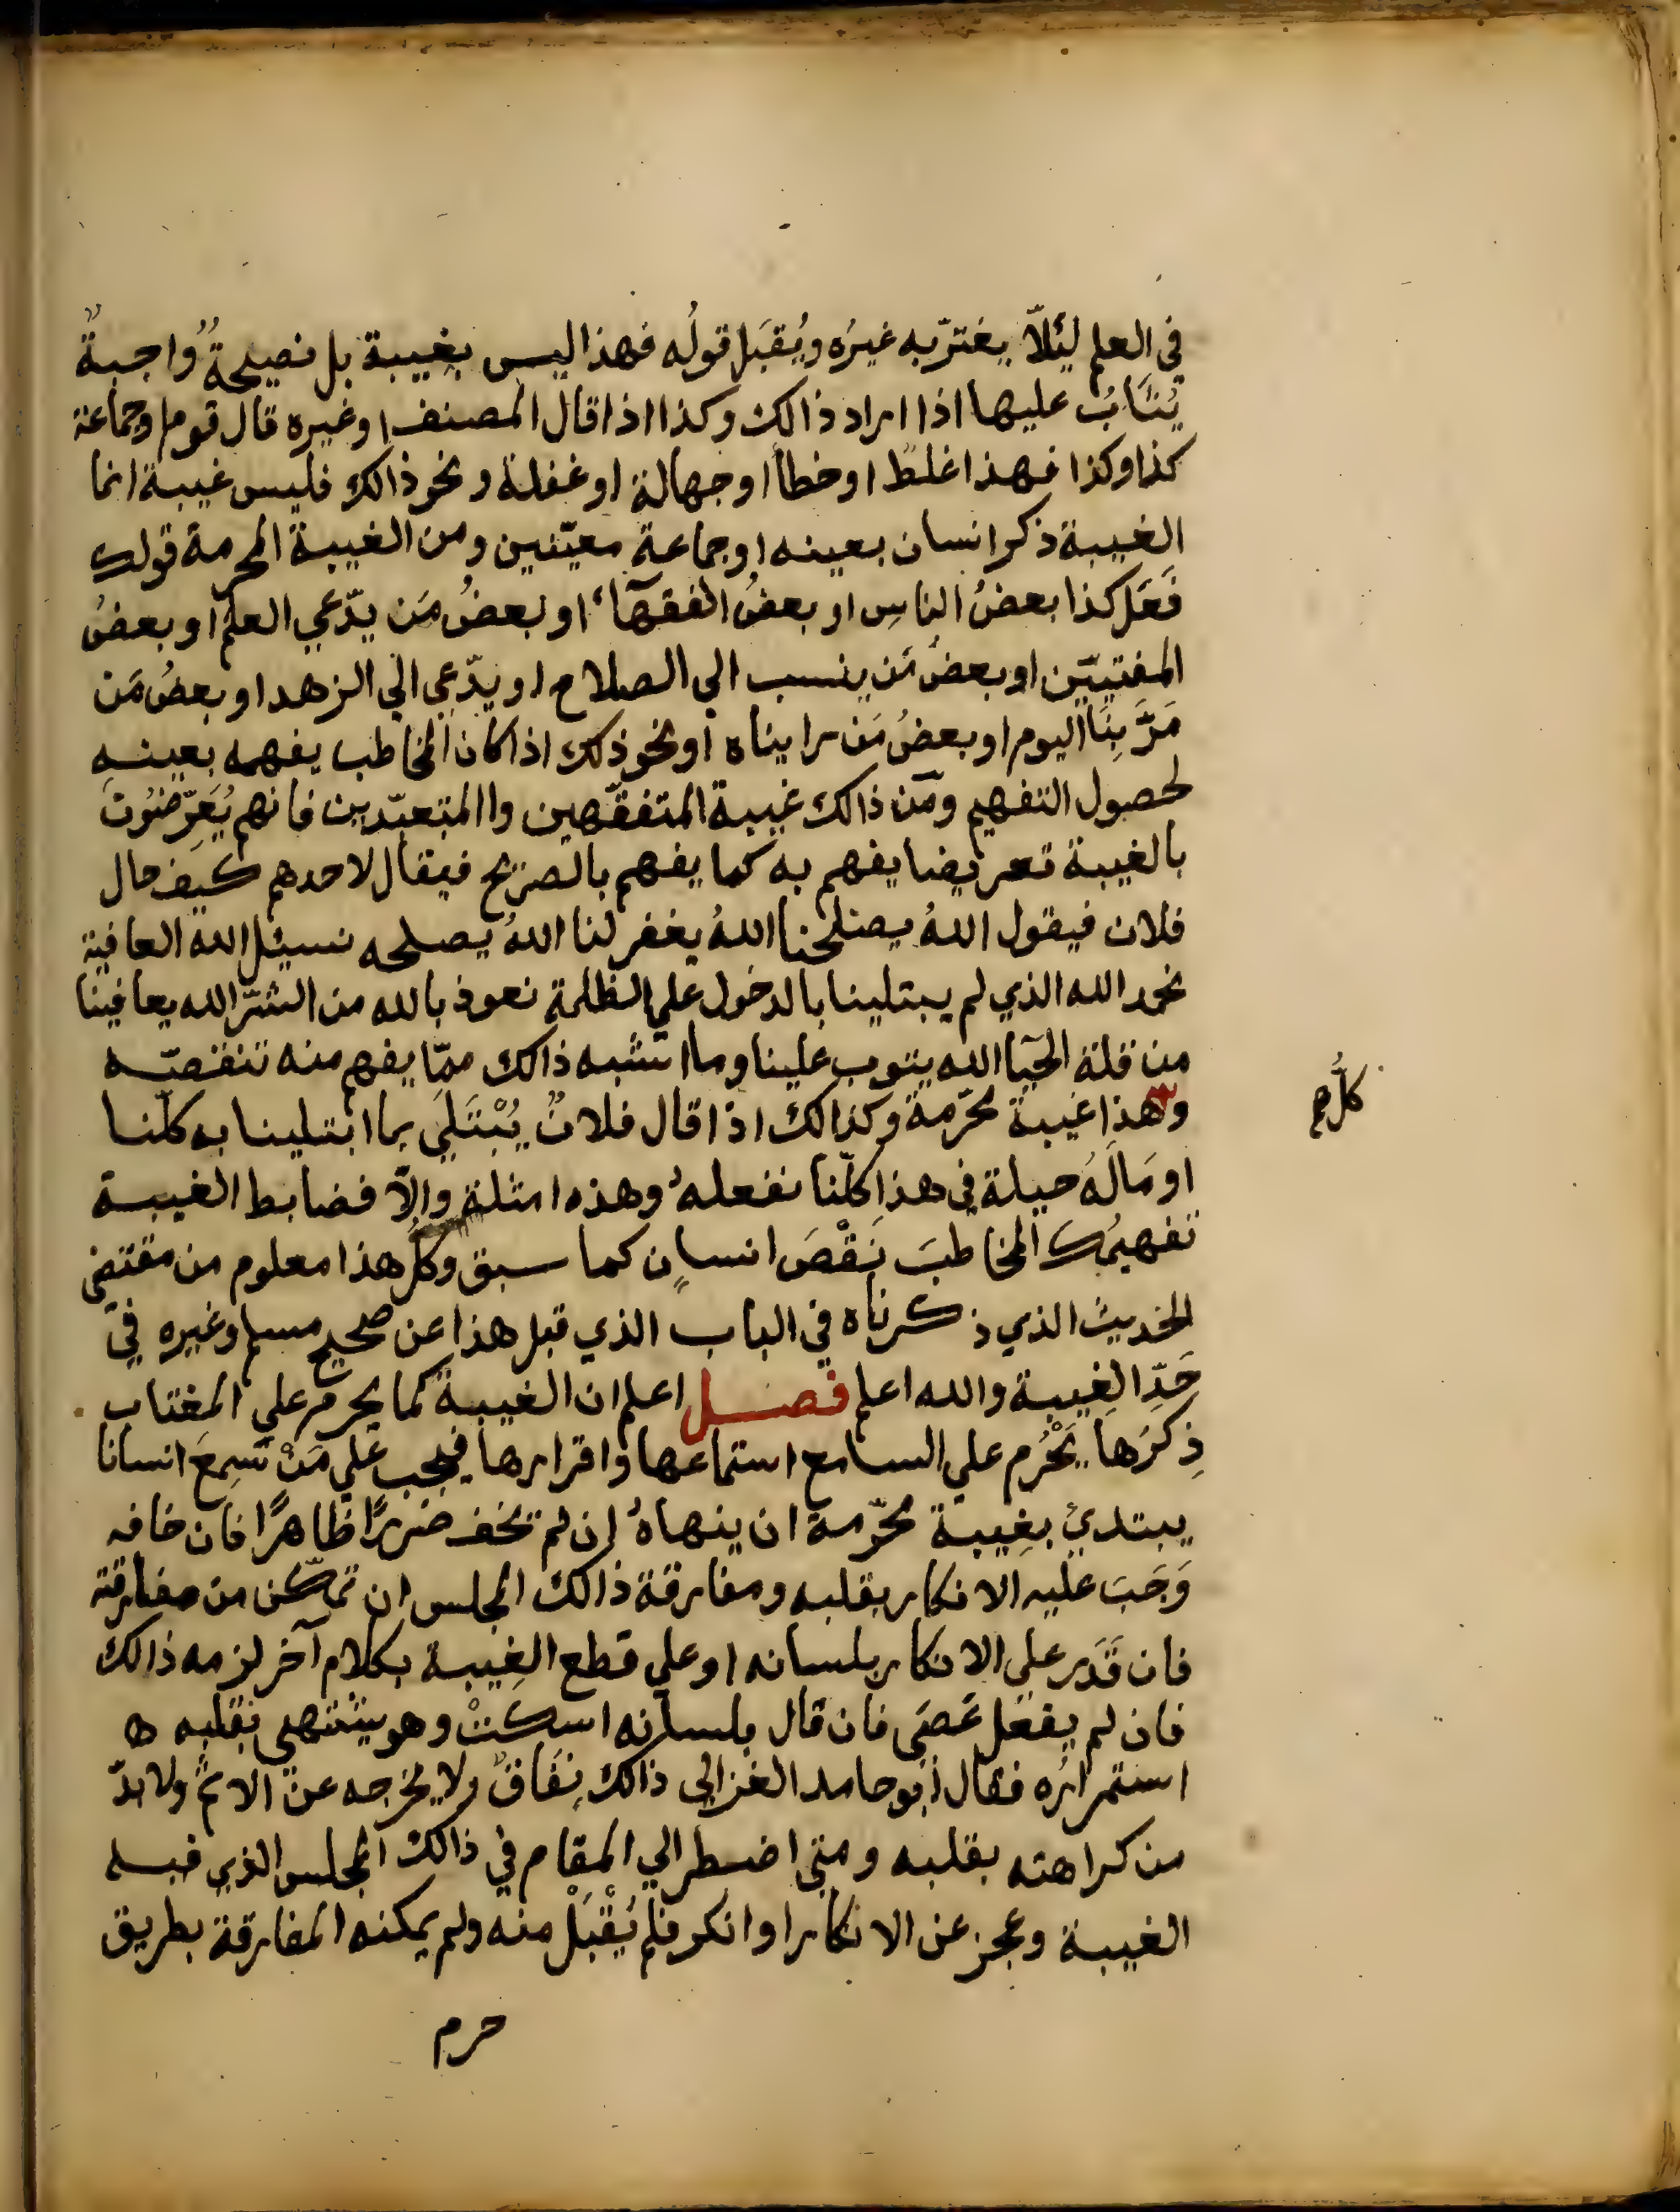 في العلم لِيَلّا يغترّ به غيرُه ويُقبَل قولُه فهذا ليس بغيبة بل نصيحةٌ واجبةٌ
يُثَابُ عليها اذا اراد ذالك وكذا اذا قال المصنف او غيره قال قوم او جماعة
كذا وكذا فهذا غلط او خطأ او جهالة او غفلة ونحو ذالك فليس غيبة انما
الغيبة ذكر انسان بعينه او جماعة معيّنين ومن الغيبة المحرمة قولك
فَعَل كذا بعضُ الناسِ او بعضُ الفقهآء او بعضُ مَن يدّعي العلم او بعضُ
المفتيّين او بعضُ مَن ينسب الي الصلاح او يدّعي الي الزهد او بعضُ مَن
مَرَّ بِنَا اليوم او بعضُ مَن رايناه او نحو ذلك اذا كان المخاطب يفهمه بعينهِ
لحصول التفهيم ومن ذالك غيبة المتفقّهين واالمتعبّدين فانهم يُعَرِّضُونَ
بالغيبة تعريضا يفهم به كما يفهم بالصريح فيقال لاحدهم كيف حال
فلان فيقول اللهُ يصلحنا اللهُ يغفر لنا اللهُ يصلحه نسيئل الله العافية
نحمد الله الذي لم يبتلينا بالدخول علي الظلمة نعوذ بالله من الشرّ الله يعافينا
من قلة الحيآ الله يتوب علينا وما اشبه ذالك ممّا يفهم منه تنقصّه
وهذا غيبة محرّمة وكذالك اذا قال فلانٌ يُبْتَلَي بما ابتلينا به كلّنا
كلُّ صح
او مَالَهُ حيلة في هذا كلّنا نفعلهُ وهذه امثلة والّا فضابط الغيبة
تفهيمُك المخاطبَ نَقْصَ انسانٍ كما سبق وكل هذا معلوم من مقتضي
الحديث الذي ذكرناه في الباب الذي قبل هذا عن صحيح مسلم وغيره في
حَدِّ الغِيبة والله اعلم فصل اعلم ان الغيبة كما يحرم علي المغتاب
ذِكرُها يَحْرُم علي السامع استماعها واقرارها فيجب علي مَنْ سَمِعَ انسانا
يبتدئ بغِيبة محرّمة ان ينهاهُ إن لم يخف ضررًا ظاهرًا فان خافه
وَجَبَ عليه الانكار بقلبه ومفارقة ذالك المجلس ان تمكّن من مفارقته
فان قَدَر علي الانكار بلسانه او علي قطع الغِيبة بكلام آخر لزمه ذالك
فان لم يفعَل عَصَي فان قال بلسانه اسكتْ وهو يشتهي بقلبه
استمرارَه فقال أبو حامد الغزالي ذالك نِفَاقٌ ولا يخرجه عن الاثم ولا بدّ
من كراهته بقلبه ومتي اضطر الي المقام في ذالك المجلس الذي فيه
الغيبة وعجز عن الانكار او انكر فلم يُقْبَلْ منه ولم يمكنه المفارقة بطريق
حرم